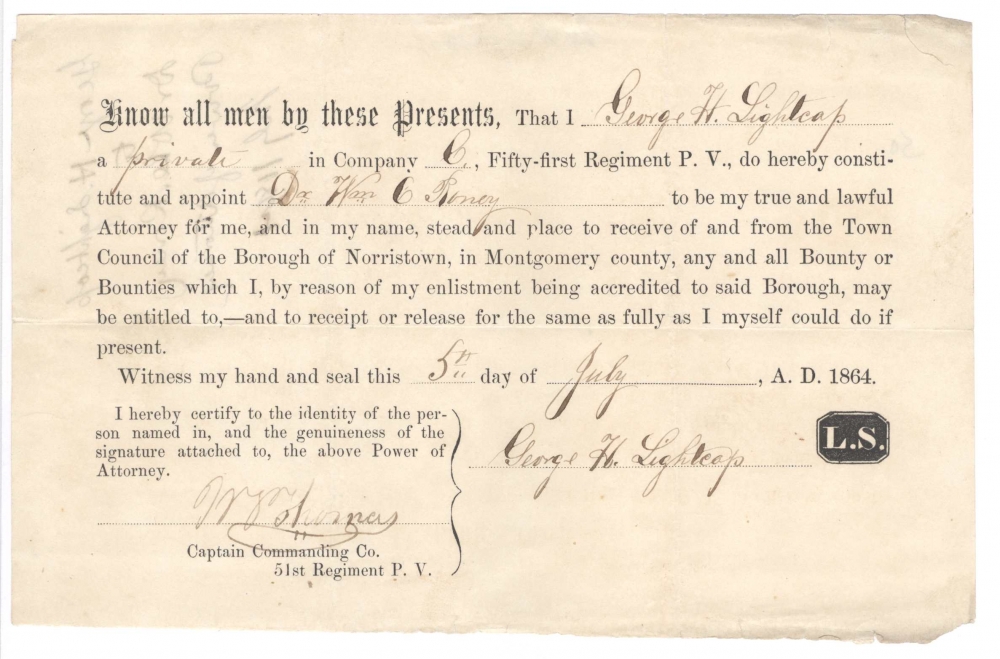 Know all men by these Presents, That I George H. Lightcap
a private in Company C., Fifty-first Regiment P. V., do hereby consti-
tute and appoint Dr Wm C Roney to be my true and lawful
Attorney for me, and in my name, stead and place to receive of and from the Town
Council of the Borough of Norristown, in Montgomery county, any and all Bounty or
Bounties which I, by reason of my enlistment being accredited to said Borough, may
be entitled to,—and to receipt or release for the same as fully as I myself could do if
present.
Witness my hand and seal this 5th day of July, A. D. 1864.
I hereby certify to the identity of the per-
son named in, and the genuineness of the
signature attached to, the above Power of
Attorney.
George H. Lightcap
L.S.
Thomas
Captain Commanding Co.
51st Regiment P. V.